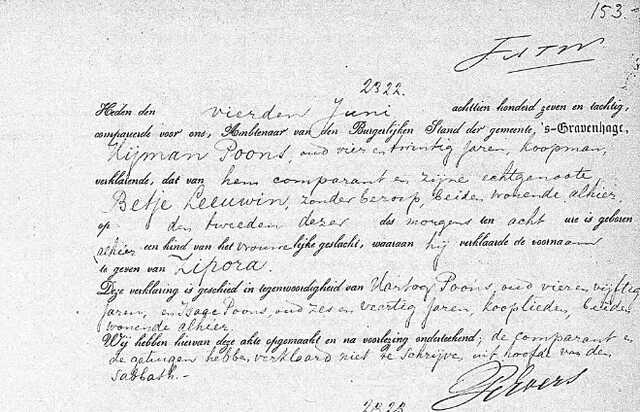 153.
2322.
Heden den vierden Juni achttien honderd zeven en tachtig,
compareerde voor ons, Ambtenaar van den Burgerlijken Stand der gemeente, 's-Gravenhage,
Hijman Poons, oud vier en twintig jaren, koopman,
verklarende, dat van hem comparant en zijne echtgenoote,
Betje Leeuwin, zonder beroep, beiden wonende alhier,
op den tweeden dezer des morgens ten acht ure is geboren
alhier een kind van het vrouwelijke geslacht, waaraan hij verklaarde de voornaam
te geven van Zipora.
Deze verklaring is geschied in tegenwoordigheid van Hartog Poons, oud vier en vijftig
jaren, en Isage Poons, oud zes en veertig jaren, kooplieden, beiden
wonende alhier
Wij hebben hiervan deze akte opgemaakt en na voorlezing onderteekend; de comparant en
de getuigen hebben verklaard niet te schrijven, uit hoofde van den
Sabbath.-
2323